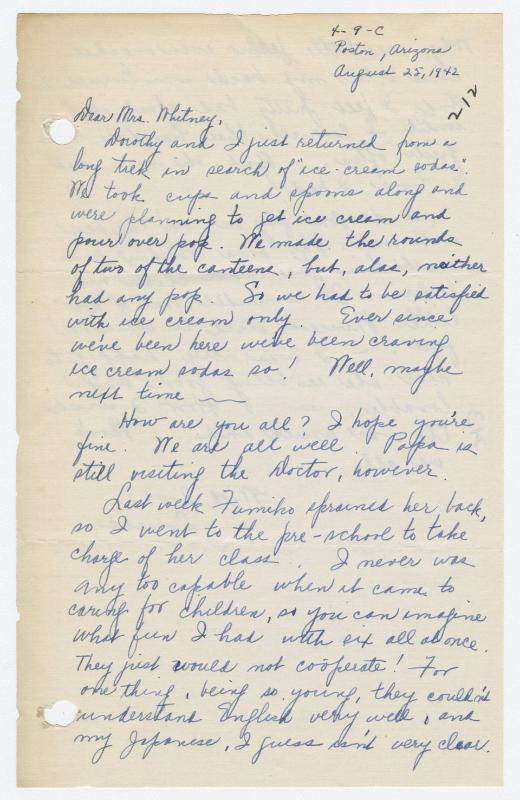 4-9-C
Poston, Arizona
August 25, 1942
212
Dear Mrs. Whitney,
Dorothy and I just returned from a
long trek in search of "ice-cream sodas".
We took cups and spoons along and
were planning to get ice cream and
pour over pop. We made the rounds
of two of the canteens, but, alas, neither
had any pop. So we had to be satisfied
with ice cream only. Ever since
we've been here we've been craving
ice cream sodas so! Well, maybe
next time —
How are you all? I hope you're
fine. We are all well. Papa is
still visiting the Doctor, however.
Last week Fumiko sprained her back,
so I went to the pre-school to take
charge of her class. I never was
any too capable when it came to
caring for children, so you can imagine
what fun I had with six all at once.
They just would not coöperate! For
one thing, being so young, they couldn't
understand English very well, and
my Japanese, I guess isn't very clear.